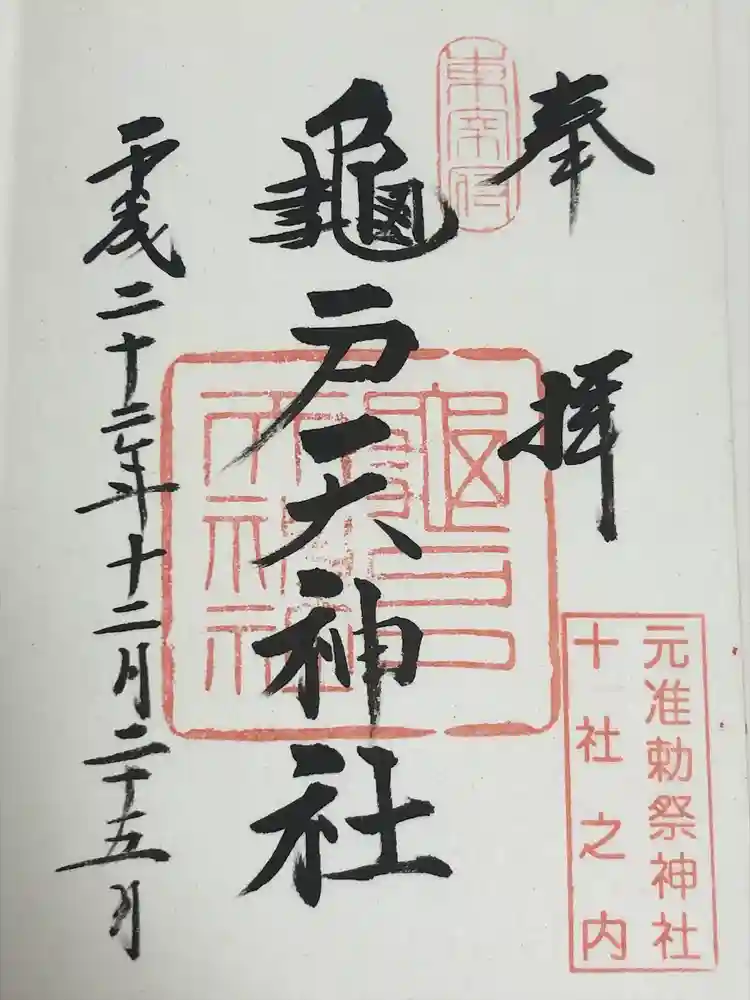 奉拝
東宰府
元准勅祭神社
十社之内
龜戸天神社
平成二十二年十二月二十五日